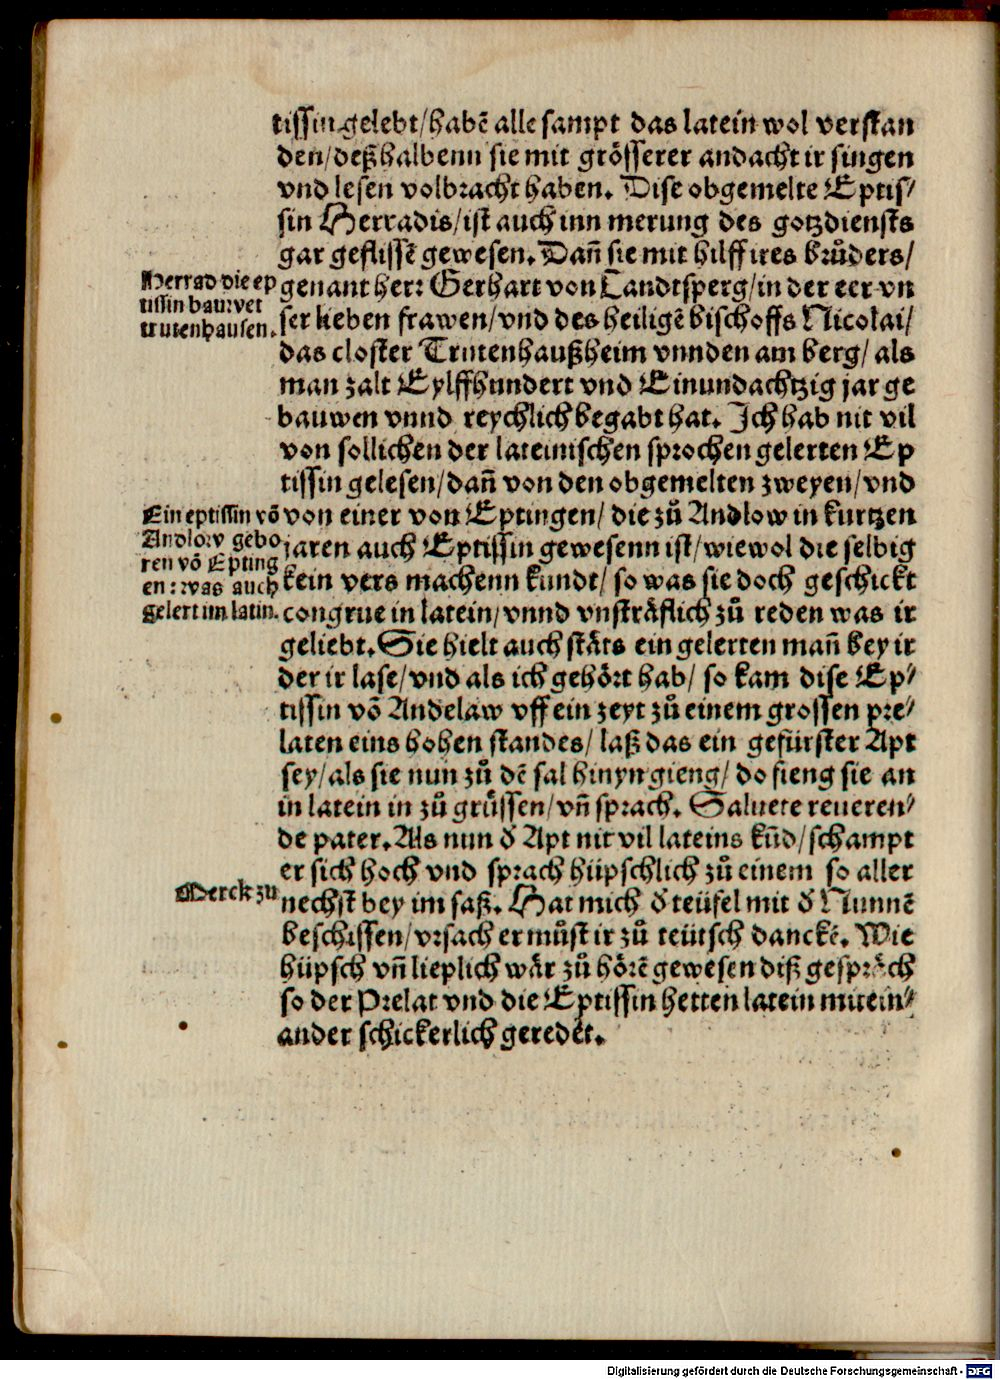 tissin gelebt/habẽ alle sampt das latein wol verstan
den/deßhalbenn sie mit grösserer andacht ir singen
vnd lesen volbracht haben. Dise obgemelte Eptis⸗
sin Herradis/ist auch inn merung des gotzdiensts
gar geflissẽ gewesen. Dañ sie mit hilff ires brůders/
genant herr Gerhart von Landtsperg/in der eer vn
ser lieben frawen/vnd des heiligẽ bischoffs Nicolai/
das closter Trutenhaußheim vnnden am berg/als
man zalt Eylffhundert vnd Einundachtzig jar ge
bauwen vnnd reychlich begabt hat. Ich hab nit vil
von sollichen der lateinischen sprochen gelerten Ep
tissin gelesen/dañ von den obgemelten zweyen/vnd
von einer von Eptingen/die zů Andlow in kurtzen
jaren auch Eptissin gewesenn ist/wiewol die selbig
kein vers machenn kundt/so was sie doch geschickt
congrue in latein/vnnd vnsträflich zů reden was ir
geliebt. Sie hielt auch stäts ein gelerten mañ bey ir
der ir lase/vnd als ich gehört hab/so kam dise Ep⸗
tissin võ Andelaw vff ein zeyt zů einem grossen pre⸗
laten eins hohen standes/laß das ein gefürster Apt
sey/als sie nun zů dẽ sal hinyn gieng/do fieng sie an
in latein in zů grüssen/vñ sprach. Saluete reueren⸗
de pater. Als nun đ Apt nit vil lateins kũd/schampt
er sich hoch vnd sprach hüpschlich zů einem so aller
nechst bey im saß. Hat mich đ teüfel mit đ Nunnẽ
beschissen/vrsach er můst ir zů teütsch danckẽ. Wie
hüpsch vñ lieplich wär zů hörẽ gewesen diß gespräch
so der Prelat vnd die Eptissin hetten latein mitein⸗
ander schickerlich geredet.
Herrad die ep
tissin bauwet
trutenhausen.
Ein eptissin võ
Andlow gebo
ren võ Epting
en: was auch
gelert im latin.
Merck zu
Digitalisierung gefördert durch die Deutsche Forschungsgemeinschaft - DFG